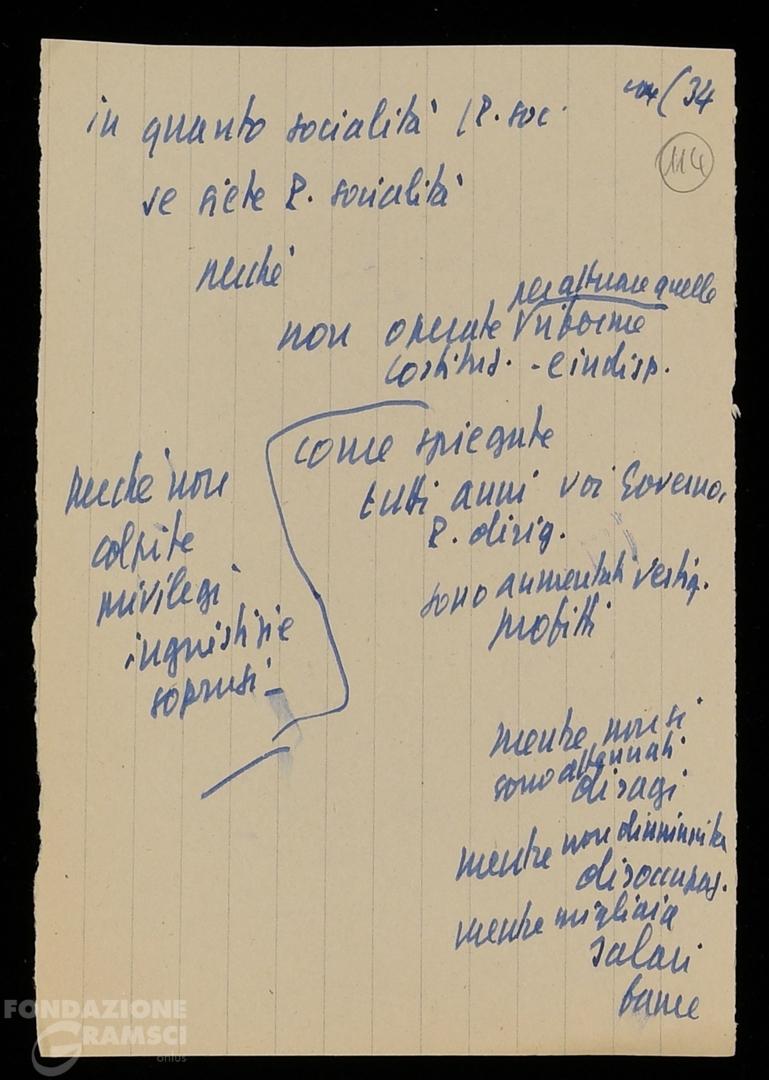 (34
114
in quanto socialità (P. soc.
se siete P. socialità
perché
per attuare quelle
non operate riforme
costituz. - e indisp.
come spiegate
tutti anni voi Governo,
P. dirig.
sono aumentati vertig.
profitti
perché non
colpite
privilegi
ingiustizie
soprusi -
mentre non si
sono attenuati
disagi
mentre non diminuita
disoccupaz.
mentre migliaia
salari
fame
FONDAZIONE
GRAMSCI
onlus